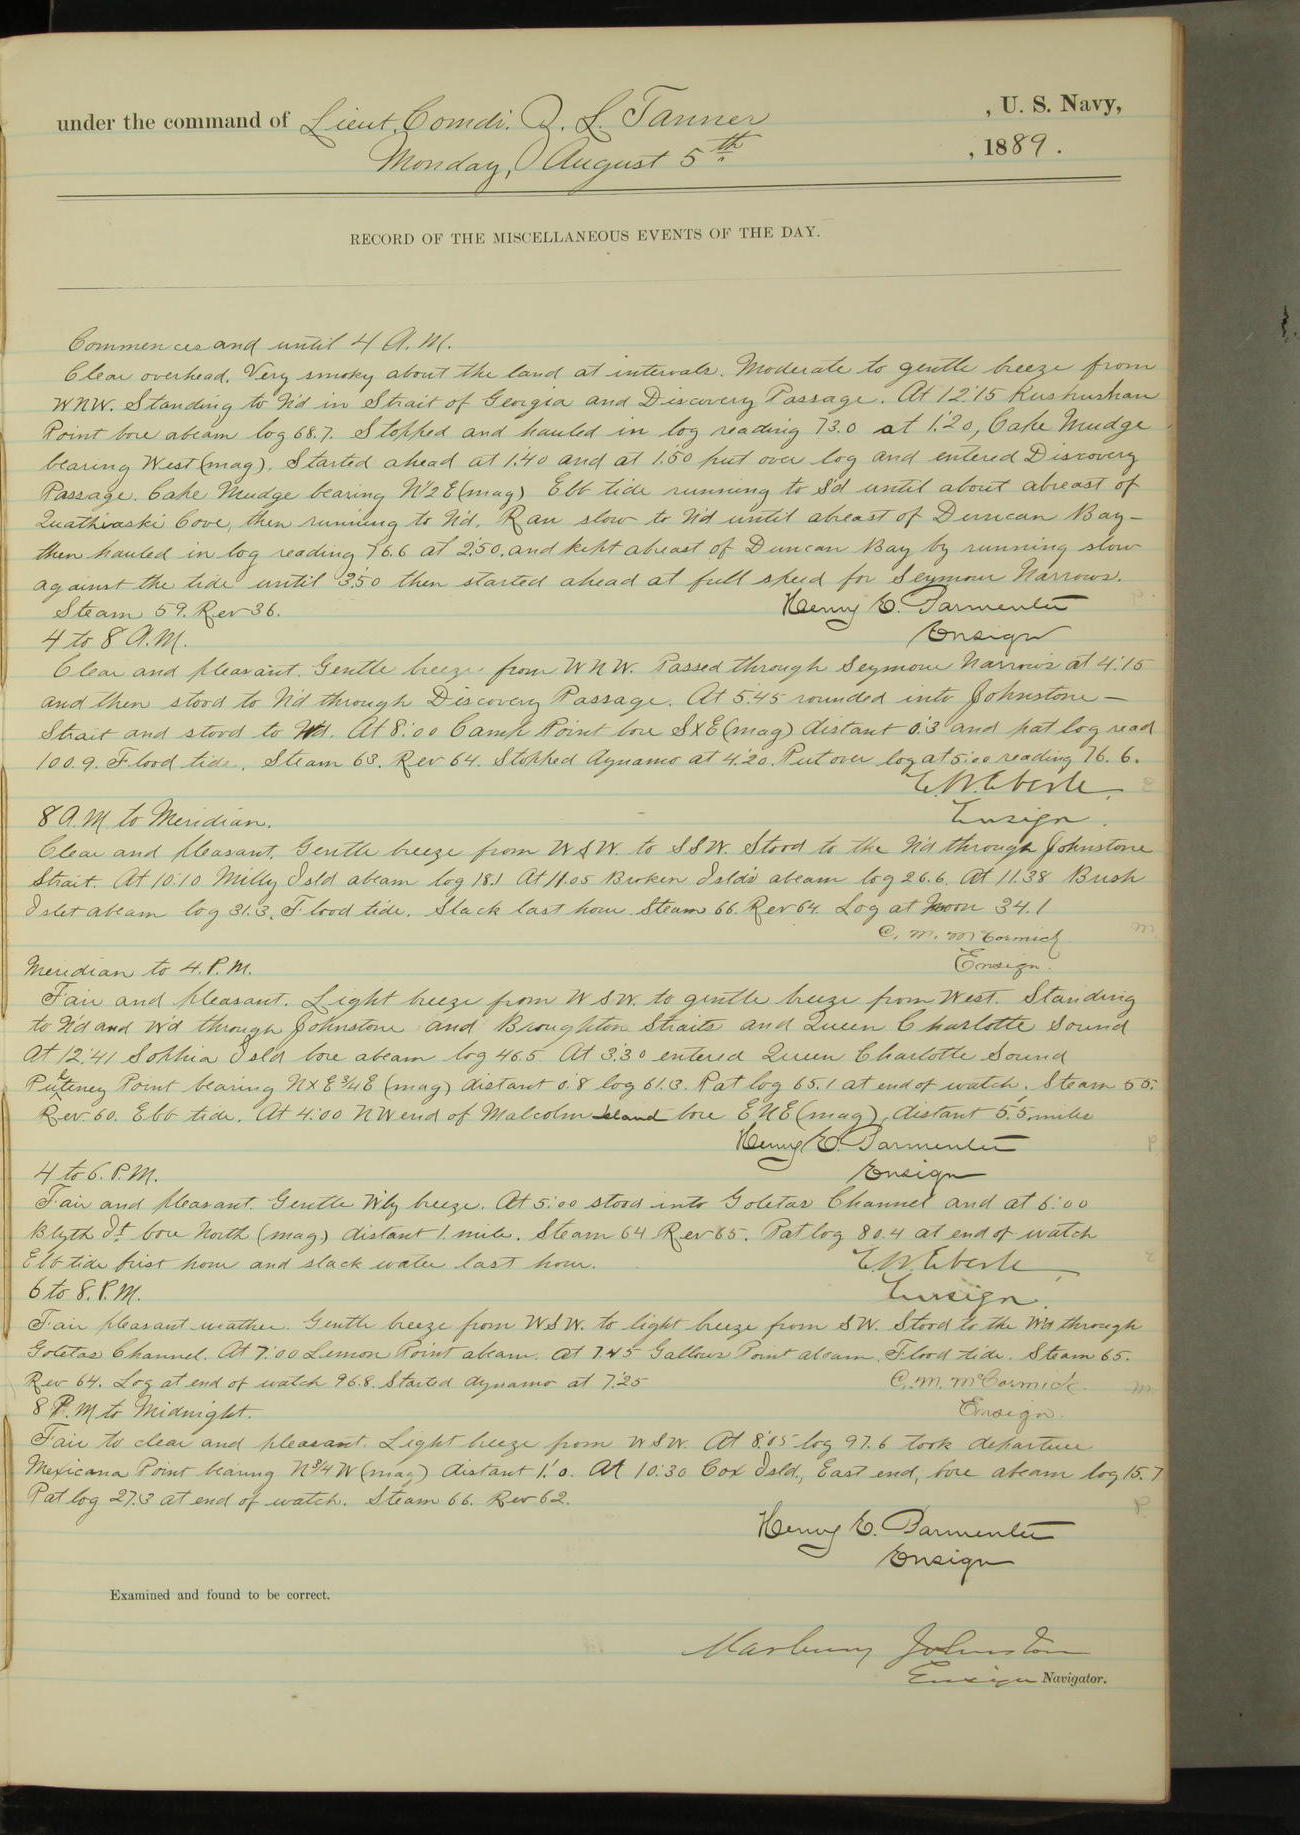 under the command of Lieut. Comdr. Z. L. Tanner , U. S. Navy,
Monday, August 5th , 1889.
RECORD OF THE MISCELLANEOUS EVENTS OF THE DAY.
Commences and until 4 A.M.
Clear overhead. Very smoky about the land at intervals. Moderate to gentle breeze from
WNW. Standing to N'd in Strait of Georgia and Discovery Passage. At 12:15 Kushushan
Point bore abeam log 68.7. Stopped and hauled in log reading 73.0 at 1:20, Cape Mudge
bearing West (mag). Started ahead at 1:40 and at 1:50 put over log and entered Discovery
Passage. Cape Mudge bearing N½E (mag) Ebb tide running to S'd until about abreast of
Quathiaski Cove, then running to N'd. Ran slow to N'd until abreast of Duncan Bay—
then hauled in log reading 76.6 at 2:50, and kept abreast of Duncan Bay by running slow
against the tide until 3:50 then started ahead at full speed for Seymour Narrows.
Steam 59. Rev 36. Henry E. Parmenter
4 to 8 A.M. Ensign
Clear and pleasant. Gentle breeze from WNW. Passed through Seymour Narrows at 4:15
and then stood to N'd through Discovery Passage. At 5:45 rounded into Johnstone—
Strait and stood to W'd. At 8:00 Camp Point bore SxE (mag) distant 0.3 and pat log read
100.9. Flood tide. Steam 63. Rev 64. Stopped dynamo at 4:20. Put over log at 5:00 reading 76.6.
E. W. Eberle,
8 A.M. to Meridian. Ensign.
Clear and pleasant. Gentle breeze from WSW. to SSW. Stood to the N'd through Johnstone
Strait. At 10:10 Milly Isld abeam log 18.1 At 11:05 Broken Islds abeam log 26.6. At 11:38 Bush
Islet abeam log 31.3. Flood tide. Slack last hour. Steam 66. Rev 64. Log at Noon 34.1
C. M. McCormick
Meridian to 4. P.M. Ensign.
Fair and pleasant. Light breeze from WSW. to gentle breeze from West. Standing
to N'd and W'd through Johnstone and Broughton Straits and Queen Charlotte Sound
At 12:41 Sophia Isld bore abeam log 46.5 At 3:30 entered Queen Charlotte Sound
Pulteney Point bearing NxE¾E (mag) distant 0.8 log 61.3. Pat log 65.1 at end of watch. Steam 55.
Rev 60. Ebb tide. At 4:00 NW end of Malcolm Island bore ENE (mag) distant 5.5 miles
Henry E. Parmenter
4 to 6. P.M. Ensign
Fair and pleasant. Gentle W'ly breeze. At 5:00 stood into Goletas Channel and at 6:00
Blyth It bore North (mag) distant 1 mile. Steam 64 Rev 65. Pat log 80.4 at end of watch
Ebb tide first hour and slack water last hour. E. W. Eberle,
6 to 8. P.M. Ensign.
Fair pleasant weather. Gentle breeze from WSW. to light breeze from SW. Stood to the W'd through
Goletas Channel. At 7:00 Lemon Point abeam. At 7:45 Gallows Point abeam. Flood tide. Steam 65.
Rev 64. Log at end of watch 96.8. Started dynamo at 7:25 C. M. McCormick.
8 P.M to Midnight. Ensign.
Fair to clear and pleasant. Light breeze from WSW. At 8:05 log 97.6 took departure
Mexicana Point bearing N¾W (mag) distant 1.0. At 10:30 Cox Isld, East end, bore abeam log 15.7
Pat log 27.3 at end of watch. Steam 66. Rev 62.
Henry E. Parmenter
Ensign
Examined and found to be correct.
Marbury Johnston
Ensign Navigator.